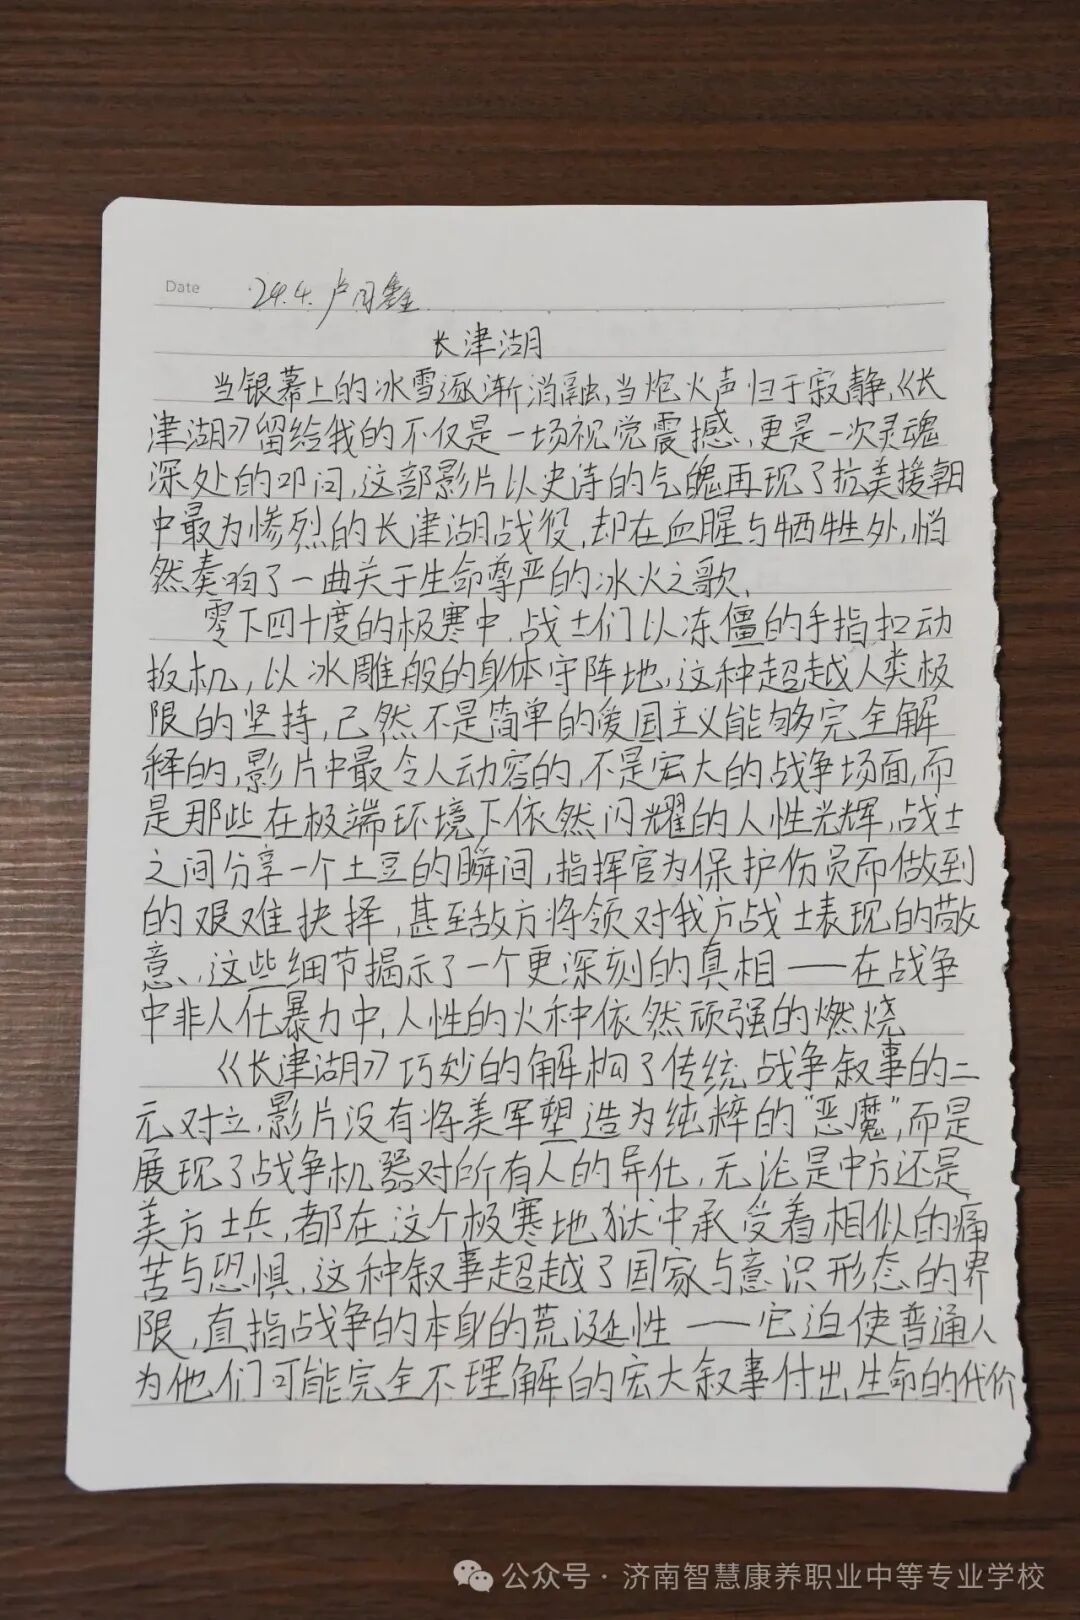 Date 24.4. 卢同鑫
长津湖
当银幕上的冰雪逐渐消融,当炮火声归于寂静,《长
津湖》留给我的不仅是一场视觉震撼,更是一次灵魂
深处的叩问,这部影片以史诗的气魄再现了抗美援朝
中最为惨烈的长津湖战役,却在血腥与牺牲处,悄
然奏响了一曲关于生命尊严的冰火之歌、
零下四十度的极寒中,战士们以冻僵的手指扣动
扳机,以冰雕般的身体守阵地,这种超越人类极
限的坚持,己然不是简单的爱国主义能够完全解
释的,影片中最令人动容的,不是宏大的战争场面,而
是那些在极端环境下依然闪耀的人性光辉,战士
之间分享一个土豆的瞬间,指挥官为保护伤员而做到
的艰难抉择,甚至敌方将领对我方战士表现的敬
意、这些细节揭示了一个更深刻的真相——在战争
中非人化暴力中,人性的火种依然顽强的燃烧
《长津湖》巧妙的解构了传统战争叙事的二
元对立,影片没有将美军塑造为纯粹的"恶魔",而是
展现了战争机器对所有人的异化,无论是中方还是
美方士兵,都在这个极寒地狱中承受着相似的痛
苦与恐惧,这种叙事超越了国家与意识形态的界
限,直指战争的本身的荒诞性——它迫使普通人
为他们可能完全不理解的宏大叙事付出生命的代价
公众号·济南智慧康养职业中等专业学校